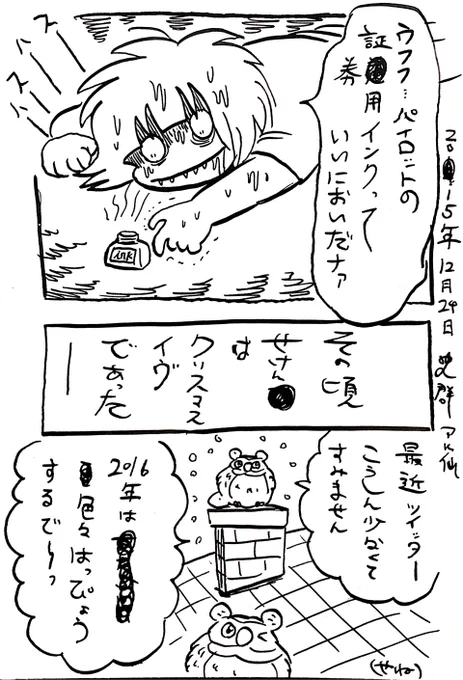 2015年12月24日 史群アル仙
ウフフ…パイロットの
証券用インクって
いいにおいだナァ
ズズズ
ink
その頃
せけんは
クリスマス
イヴ
であった
ー
最近ツイッター
こうしん少なくて
すみません
2016年は
色々はっぴょう
するでーっ